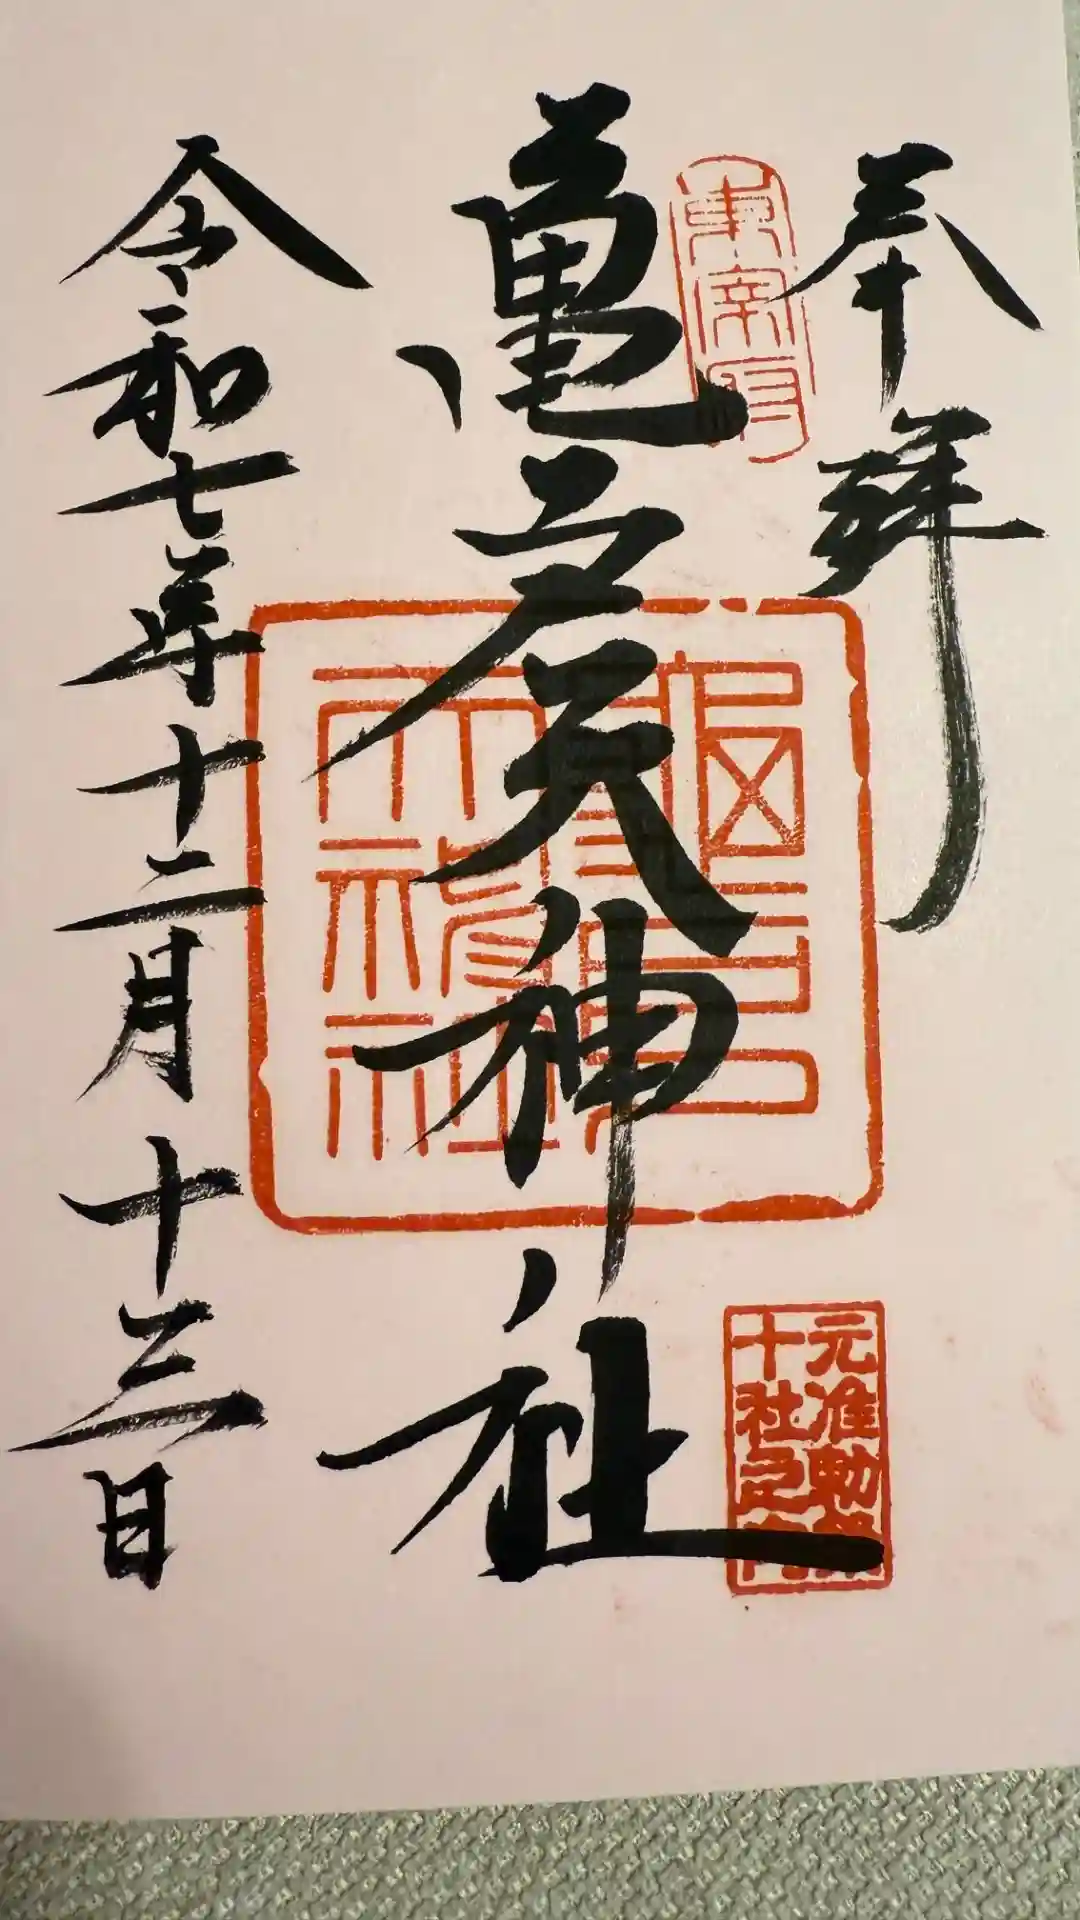 奉拝
東宰府
亀戸天神社
元准勅祭
十社之内
令和七年十二月十三日